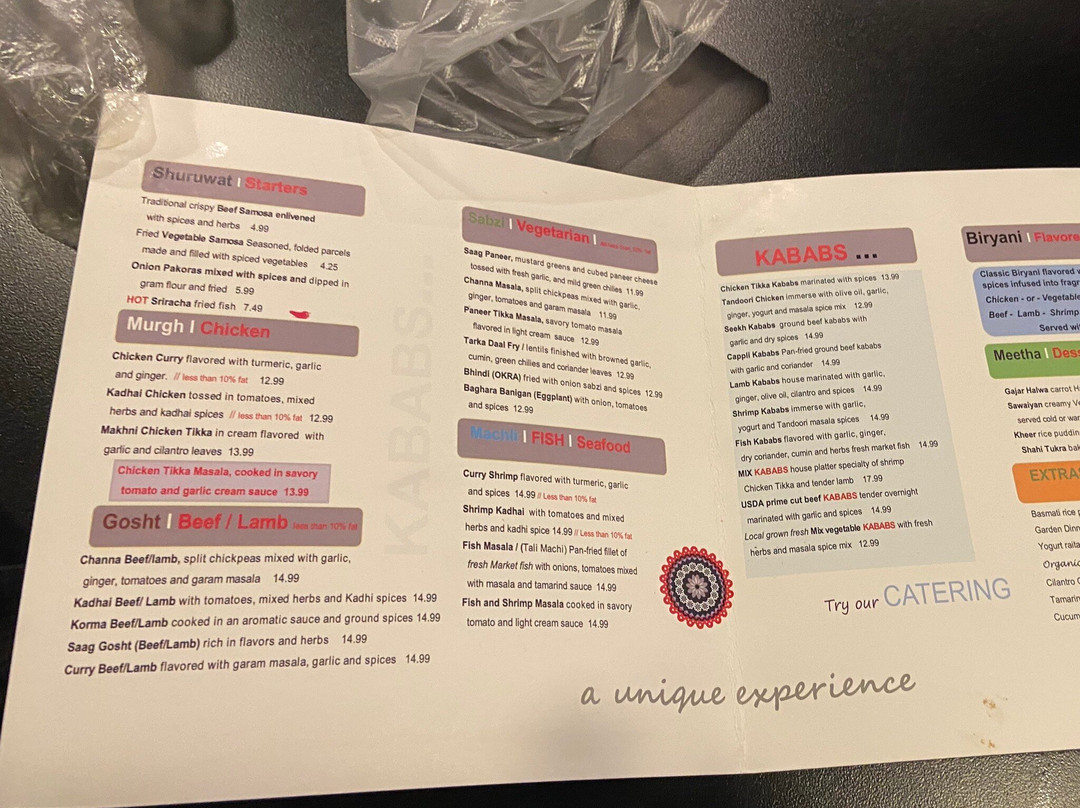 Shuruwat | Starters
Traditional crispy Beef Samosa enlivened
with spices and herbs 4.99
Fried Vegetable Samosa Seasoned, folded parcels
made and filled with spiced vegetables 4.25
Onion Pakoras mixed with spices and dipped in
gram flour and fried 5.99
HOT Sriracha fried fish 7.49
Murgh | Chicken
Chicken Curry flavored with turmeric, garlic
and ginger. // less than 10% fat 12.99
Kadhai Chicken tossed in tomatoes, mixed
herbs and kadhai spices // less than 10% fat 12.99
Makhni Chicken Tikka in cream flavored with
garlic and cilantro leaves 13.99
Chicken Tikka Masala, cooked in savory
tomato and garlic cream sauce 13.99
Gosht | Beef / Lamb less than 10% fat
Channa Beef/lamb, split chickpeas mixed with garlic,
ginger, tomatoes and garam masala 14.99
Kadhai Beef/ Lamb with tomatoes, mixed herbs and Kadhi spices 14.99
Korma Beef/Lamb cooked in an aromatic sauce and ground spices 14.99
Saag Gosht (Beef/Lamb) rich in flavors and herbs 14.99
Curry Beef/Lamb flavored with garam masala, garlic and spices 14.99
KABABS...
Sabzi | Vegetarian |
Saag Paneer, mustard greens and cubed paneer cheese
tossed with fresh garlic, and mild green chilies 11.99
Channa Masala, split chickpeas mixed with garlic,
ginger, tomatoes and garam masala 11.99
Paneer Tikka Masala, savory tomato masala
flavored in light cream sauce 12.99
Tarka Daal Fry / lentils finished with browned garlic,
cumin, green chilies and coriander leaves 12.99
Bhindi (OKRA) fried with onion sabzi and spices 12.99
Baghara Banigan (Eggplant) with onion, tomatoes
and spices 12.99
Machli | FISH | Seafood
Curry Shrimp flavored with turmeric, garlic
and spices 14.99 // Less than 10% fat
Shrimp Kadhai with tomatoes and mixed
herbs and kadhi spice 14.99 // Less than 10% fat
Fish Masala / (Tali Machi) Pan-fried fillet of
fresh Market fish with onions, tomatoes mixed
with masala and tamarind sauce 14.99
Fish and Shrimp Masala cooked in savory
tomato and light cream sauce 14.99
KABABS ...
Chicken Tikka Kababs marinated with spices 13.99
Tandoori Chicken immerse with olive oil, garlic,
ginger, yogurt and masala spice mix 12.99
Seekh Kababs ground beef kababs with
garlic and dry spices 14.99
Cappli Kababs Pan-fried ground beef kababs
with garlic and coriander 14.99
Lamb Kababs house marinated with garlic,
ginger, olive oil, cilantro and spices 14.99
Shrimp Kababs immerse with garlic,
yogurt and Tandoori masala spices 14.99
Fish Kababs flavored with garlic, ginger,
dry coriander, cumin and herbs fresh market fish 14.99
MIX KABABS house platter specialty of shrimp
Chicken Tikka and tender lamb 17.99
USDA prime cut beef KABABS tender overnight
marinated with garlic and spices 14.99
Local grown fresh Mix vegetable KABABS with fresh
herbs and masala spice mix 12.99
Try our CATERING
a unique experience
Biryani | Flavore
Classic Biryani flavored
spices infused into fragr
Chicken - or - Vegetable
Beef - Lamb - Shrimp
Served wi
Meetha | Des
Gajar Halwa carrot H
Sawaiyan creamy Ve
served cold or war
Kheer rice puddin
Shahi Tukra bak
EXTRA
Basmati rice
Garden Dinn
Yogurt raita
Organic
Cilantro C
Tamarin
Cucum